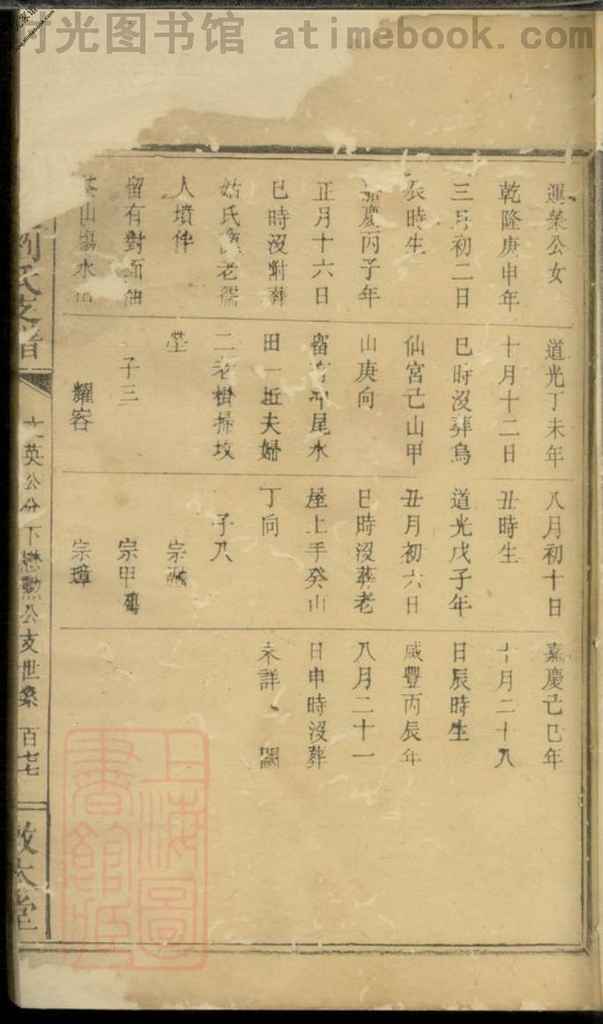 时光图书馆 atimebook.com
運榮公女
乾隆庚申年
三月初二日
辰時生
嘉慶丙子年
正月十六日
巳時沒對葬
姑氏老
人墳伴
留有對面油
山水
道光丁未年
十月十二日
巳時沒葬烏
仙宮己山甲
山庚向
留水尾水
田一坵夫婦
二老樹掃坟
塋
子三
耀客
八月初十日
丑時生
道光戊子年
丑月初六日
巳時沒葬老
屋上手癸山
丁向
子八
宗
宗甲
宗璋
嘉慶己巳年
十月二十八
日辰時生
咸豐丙辰年
八月二十一
日申時沒葬
未詳
劉氏支譜
英公分下懋勲公支世系
百七七
敦本堂
上海圖書館藏